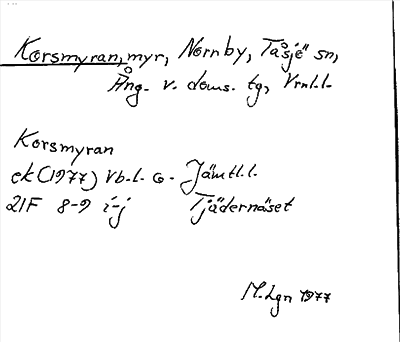 Korsmyran, myr, Norrnby, Tåsjö sn,
Ång. v. doms. tg, Vrnl.l.
Korsmyran
ek (1977) Vb.l. o. Jämtl.l.
21F 8-9 i-j Tjädernäset
M.Lgn 1977